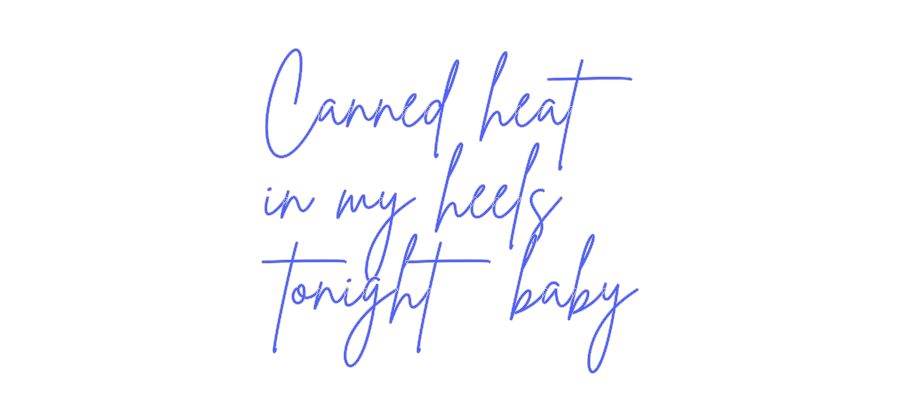 Canned heat
in my heels
tonight baby